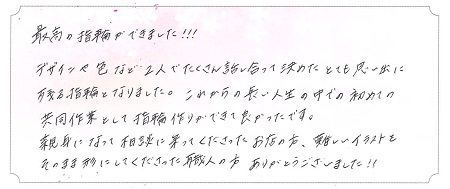 最高の指輪ができました!!!
デザインや色など2人でたくさん話し合って決めたとても思い出に
残る指輪となりました。これからの長い人生の中での初めての
共同作業として指輪作りができて良かったです。
親身になって相談に乗ってくださったお店の方、難しいイラストを
そのまま形にしてくださった職人の方 ありがとうございました!!